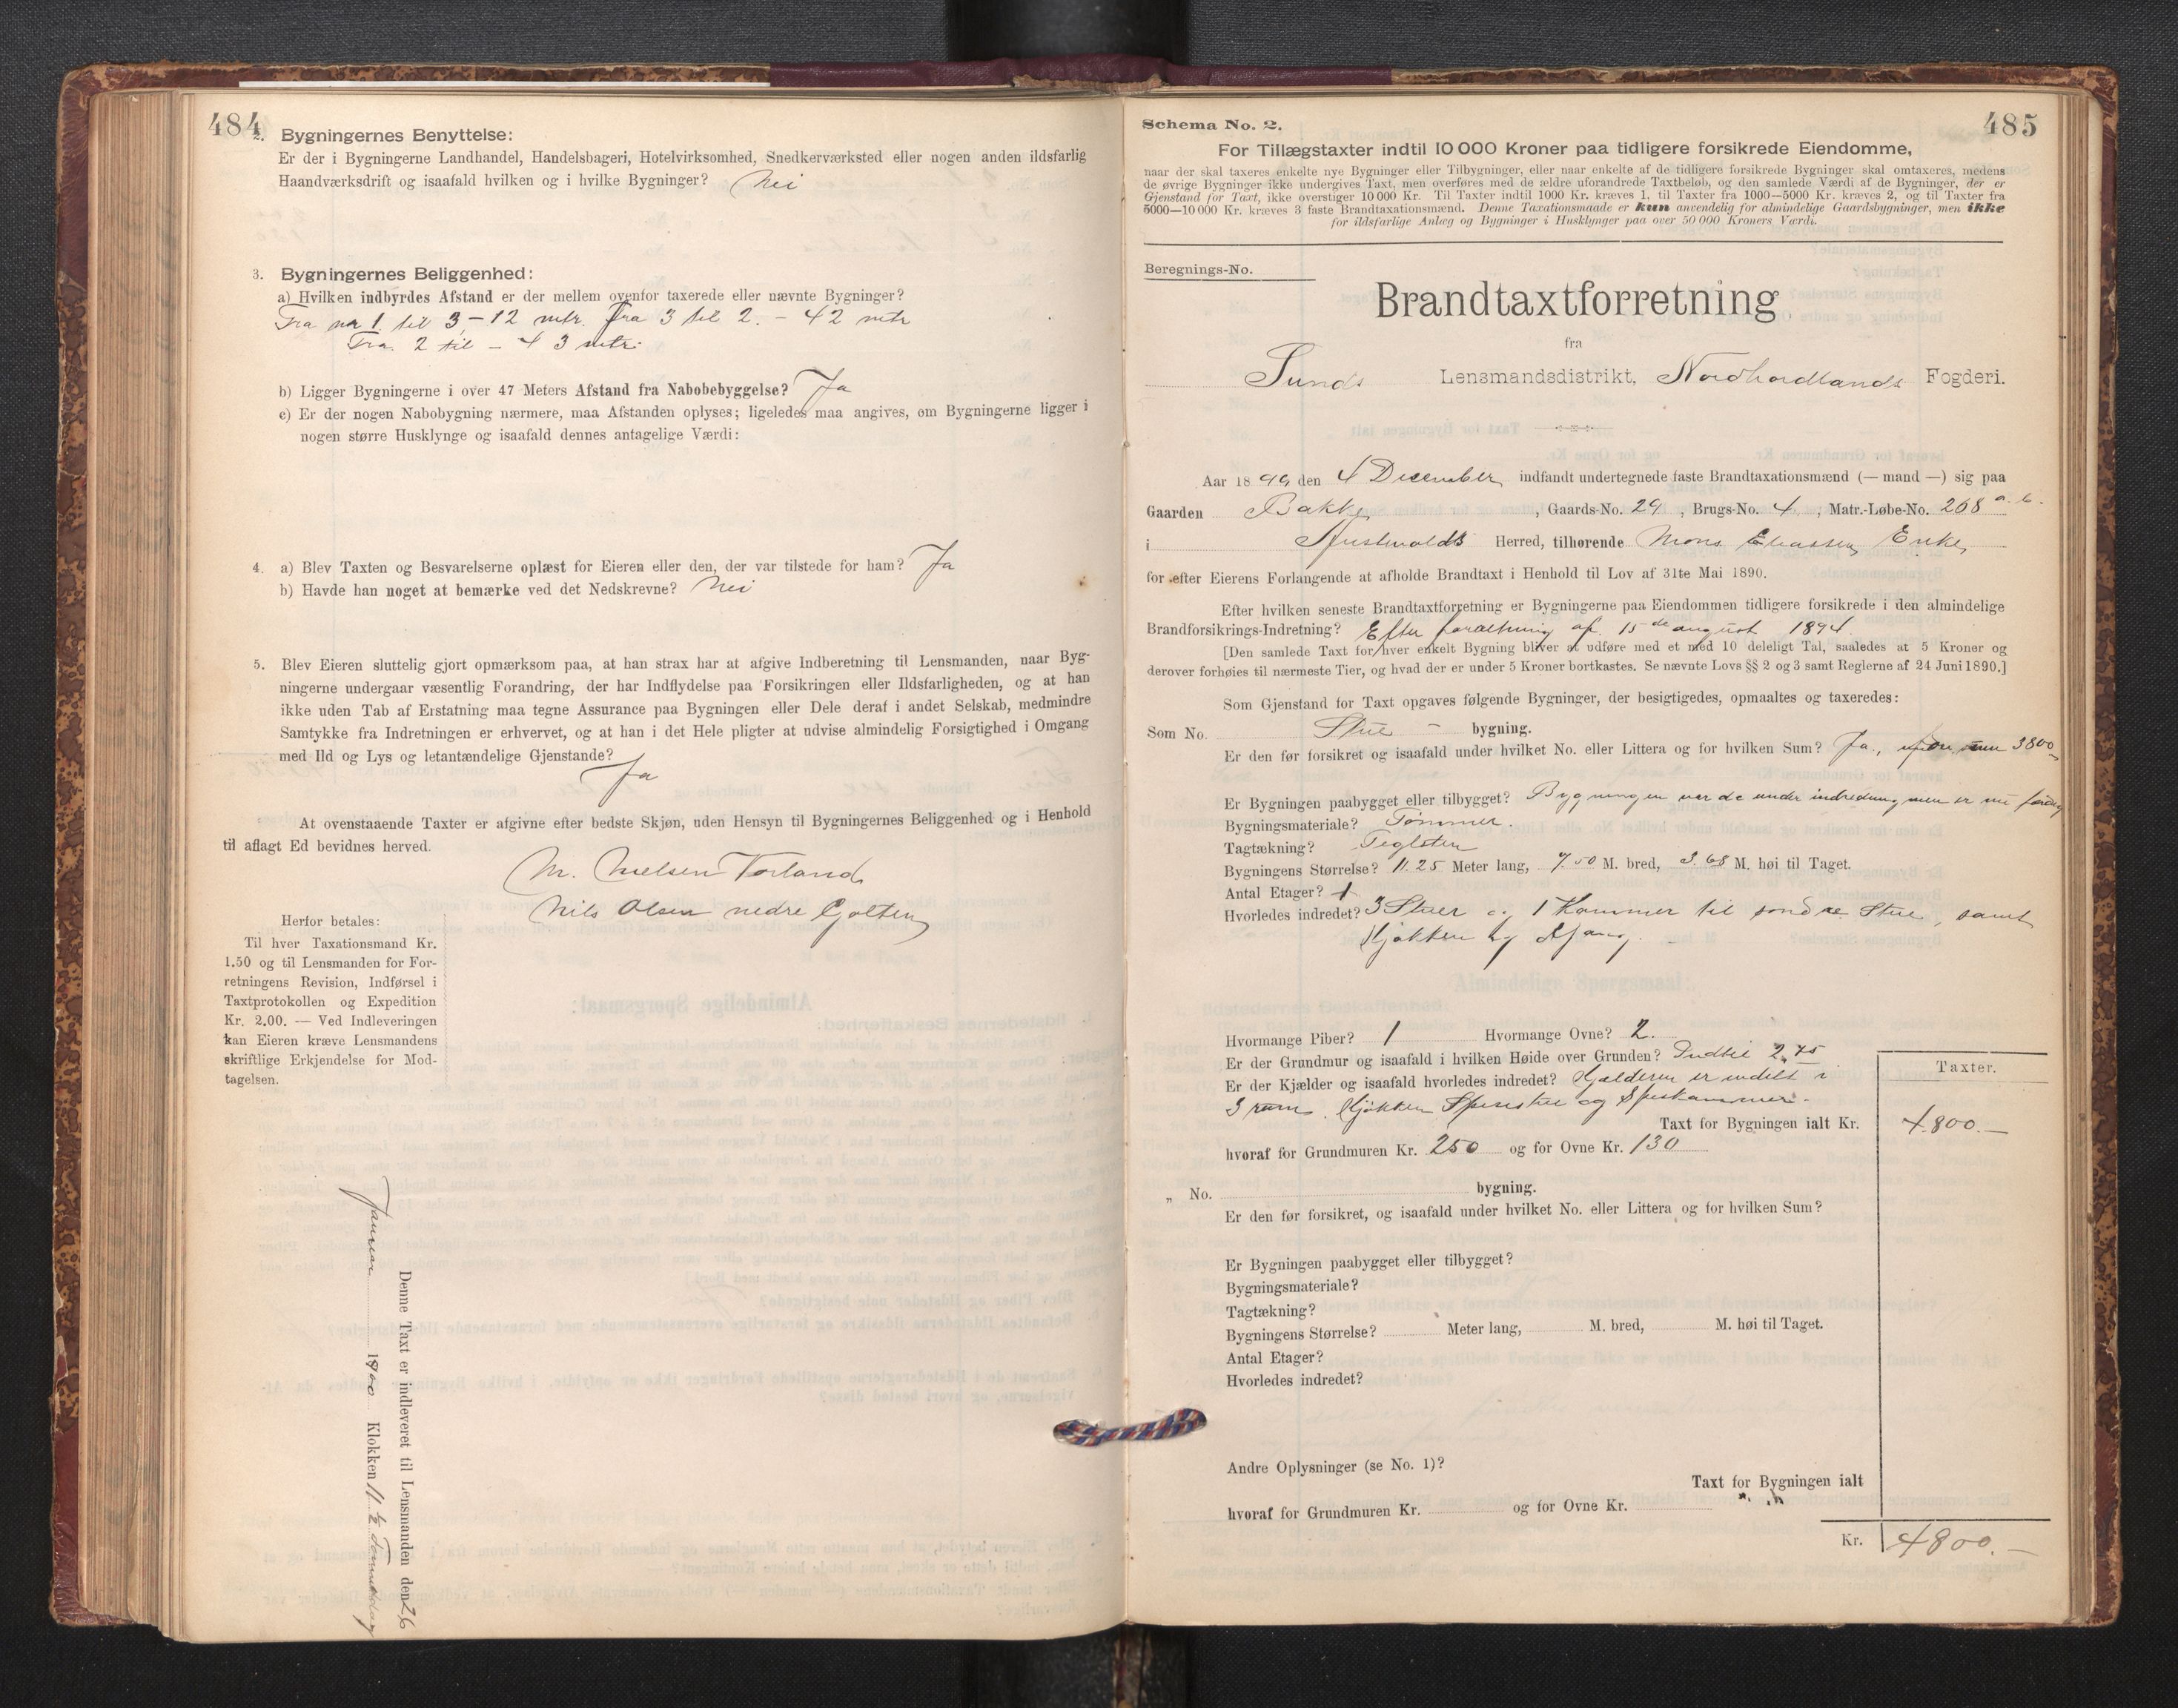 484
2. Bygningernes Benyttelse:
Er der i Bygningerne Landhandel, Handelsbageri, Hotelvirksomhed, Snedkerværksted eller nogen anden ildsfarlig
Haandværksdrift og isaafald hvilken og i hvilke Bygninger? Nei
3. Bygningernes Beliggenhed:
a) Hvilken indbyrdes Afstand er der mellem ovenfor taxerede eller nævnte Bygninger?
Fra nr 1 til 3 - 12 mtr. fra 3 til 2. - 42 mtr
Fra 2 til - 4 3 mtr.
b) Ligger Bygningerne i over 47 Meters Afstand fra Nabobebyggelse? Ja
c) Er der nogen Nabobygning nærmere, maa Afstanden oplyses; ligeledes maa angives, om Bygningerne ligger i
nogen større Husklynge og isaafald dennes antagelige Værdi:
4. a) Blev Taxten og Besvarelserne oplæst for Eieren eller den, der var tilstede for ham? Ja
b) Havde han noget at bemærke ved det Nedskrevne? Nei
5. Blev Eieren sluttelig gjort opmærksom paa, at han strax har at afgive Indberetning til Lensmanden, naar Byg-
ningerne undergaar væsentlig Forandring, der har Indflydelse paa Forsikringen eller Ildsfarligheden, og at han
ikke uden Tab af Erstatning maa tegne Assurance paa Bygningen eller Dele deraf i andet Selskab, medmindre
Samtykke fra Indretningen er erhvervet, og at han i det Hele pligter at udvise almindelig Forsigtighed i Omgang
med Ild og Lys og letantændelige Gjenstande?
Ja
At ovenstaaende Taxter er afgivne efter bedste Skjøn, uden Hensyn til Bygningernes Beliggenhed og i Henhold
til aflagt Ed bevidnes herved.
M. Nielsen Vorland
Nils Olsen nedre Golten
Herfor betales:
Til hver Taxationsmand Kr.
1.50 og til Lensmanden for For-
retningens Revision, Indførsel i
Taxtprotokollen og Expedition
Kr. 2.00. — Ved Indleveringen
kan Eieren kræve Lensmandens
skriftlige Erkjendelse for Mod-
tagelsen.
Denne Taxt er indleveret til Lensmanden den 26
Januar 1900 Klokken 11 ½ Formiddag
485
Schema No. 2.
For Tillægstaxter indtil 10 000 Kroner paa tidligere forsikrede Eiendomme,
naar der skal taxeres enkelte nye Bygninger eller Tilbygninger, eller naar enkelte af de tidligere forsikrede Bygninger skal omtaxeres, medens
de øvrige Bygninger ikke undergives Taxt, men overføres med de ældre uforandrede Taxtbeløb, og den samlede Værdi af de Bygninger, der er
Gjenstand for Taxt, ikke overstiger 10 000 Kr. Til Taxter indtil 1000 Kr. kræves 1, til Taxter fra 1000—5000 Kr. kræves 2, og til Taxter fra
5000—10 000 Kr. kræves 3 faste Brandtaxationsmænd. Denne Taxationsmaade er kun anvendelig for almindelige Gaardsbygninger, men ikke
for ildsfarlige Anlæg og Bygninger i Husklynger paa over 50 000 Kroners Værdi.
Beregnings-No.
Brandtaxtforretning
fra
Sunds Lensmandsdistrikt, Nordhordlands Fogderi.
Aar 1899 den 4 December indfandt undertegnede faste Brandtaxationsmænd (— mand —) sig paa
Gaarden Bakke, Gaards-No. 29, Brugs-No. 4, Matr.-Løbe-No. 268 a. b.
i Austevolds Herred, tilhørende Mons Eliassen Enke
for efter Eierens Forlangende at afholde Brandtaxt i Henhold til Lov af 31te Mai 1890.
Efter hvilken seneste Brandtaxtforretning er Bygningerne paa Eiendommen tidligere forsikrede i den almindelige
Brandforsikrings-Indretning? Efter forretning af 15de august 1894.
[Den samlede Taxt for hver enkelt Bygning bliver at udføre med et med 10 deleligt Tal, saaledes at 5 Kroner og
derover forhøies til nærmeste Tier, og hvad der er under 5 Kroner bortkastes. Se nævnte Lovs §§ 2 og 3 samt Reglerne af 24 Juni 1890.]
Som Gjenstand for Taxt opgaves følgende Bygninger, der besigtigedes, opmaaltes og taxeredes:
Som No. Stue - bygning.
Er den før forsikret og isaafald under hvilket No. eller Littera og for hvilken Sum? Ja, 3800
Er Bygningen paabygget eller tilbygget? Bygningen var da under indredning men er nu færdig
Bygningsmateriale? Tømmer.
Tagtækning? Teglsten
Bygningens Størrelse? 11.25 Meter lang, 7.50 M. bred, 3.68 M. høi til Taget.
Antal Etager? 1
Hvorledes indredet? 3 Stuer og 1 Kammer til søndre Stue, samt
Kjøkken og Afgang.
Hvormange Piber? 1 Hvormange Ovne? 2.
Er der Grundmur og isaafald i hvilken Høide over Grunden? Indtil 2,75
Er der Kjælder og isaafald hvorledes indredet? Kjælderen er indelt i
3 rum, Kjøkken Spisestue og Spiskammer.
Taxter.
Taxt for Bygningen ialt Kr. 4800.—
hvoraf for Grundmuren Kr. 250 og for Ovne Kr. 130
„ No. bygning.
Er den før forsikret, og isaafald under hvilket No. eller Littera og for hvilken Sum?
Er Bygningen paabygget eller tilbygget?
Bygningsmateriale?
Tagtækning?
Bygningens Størrelse? Meter lang, M. bred, M. høi til Taget.
Antal Etager?
Hvorledes indredet?
Andre Oplysninger (se No. 1)?
Taxt for Bygningen ialt
hvoraf for Grundmuren Kr. og for Ovne Kr.
Kr. 4800.—